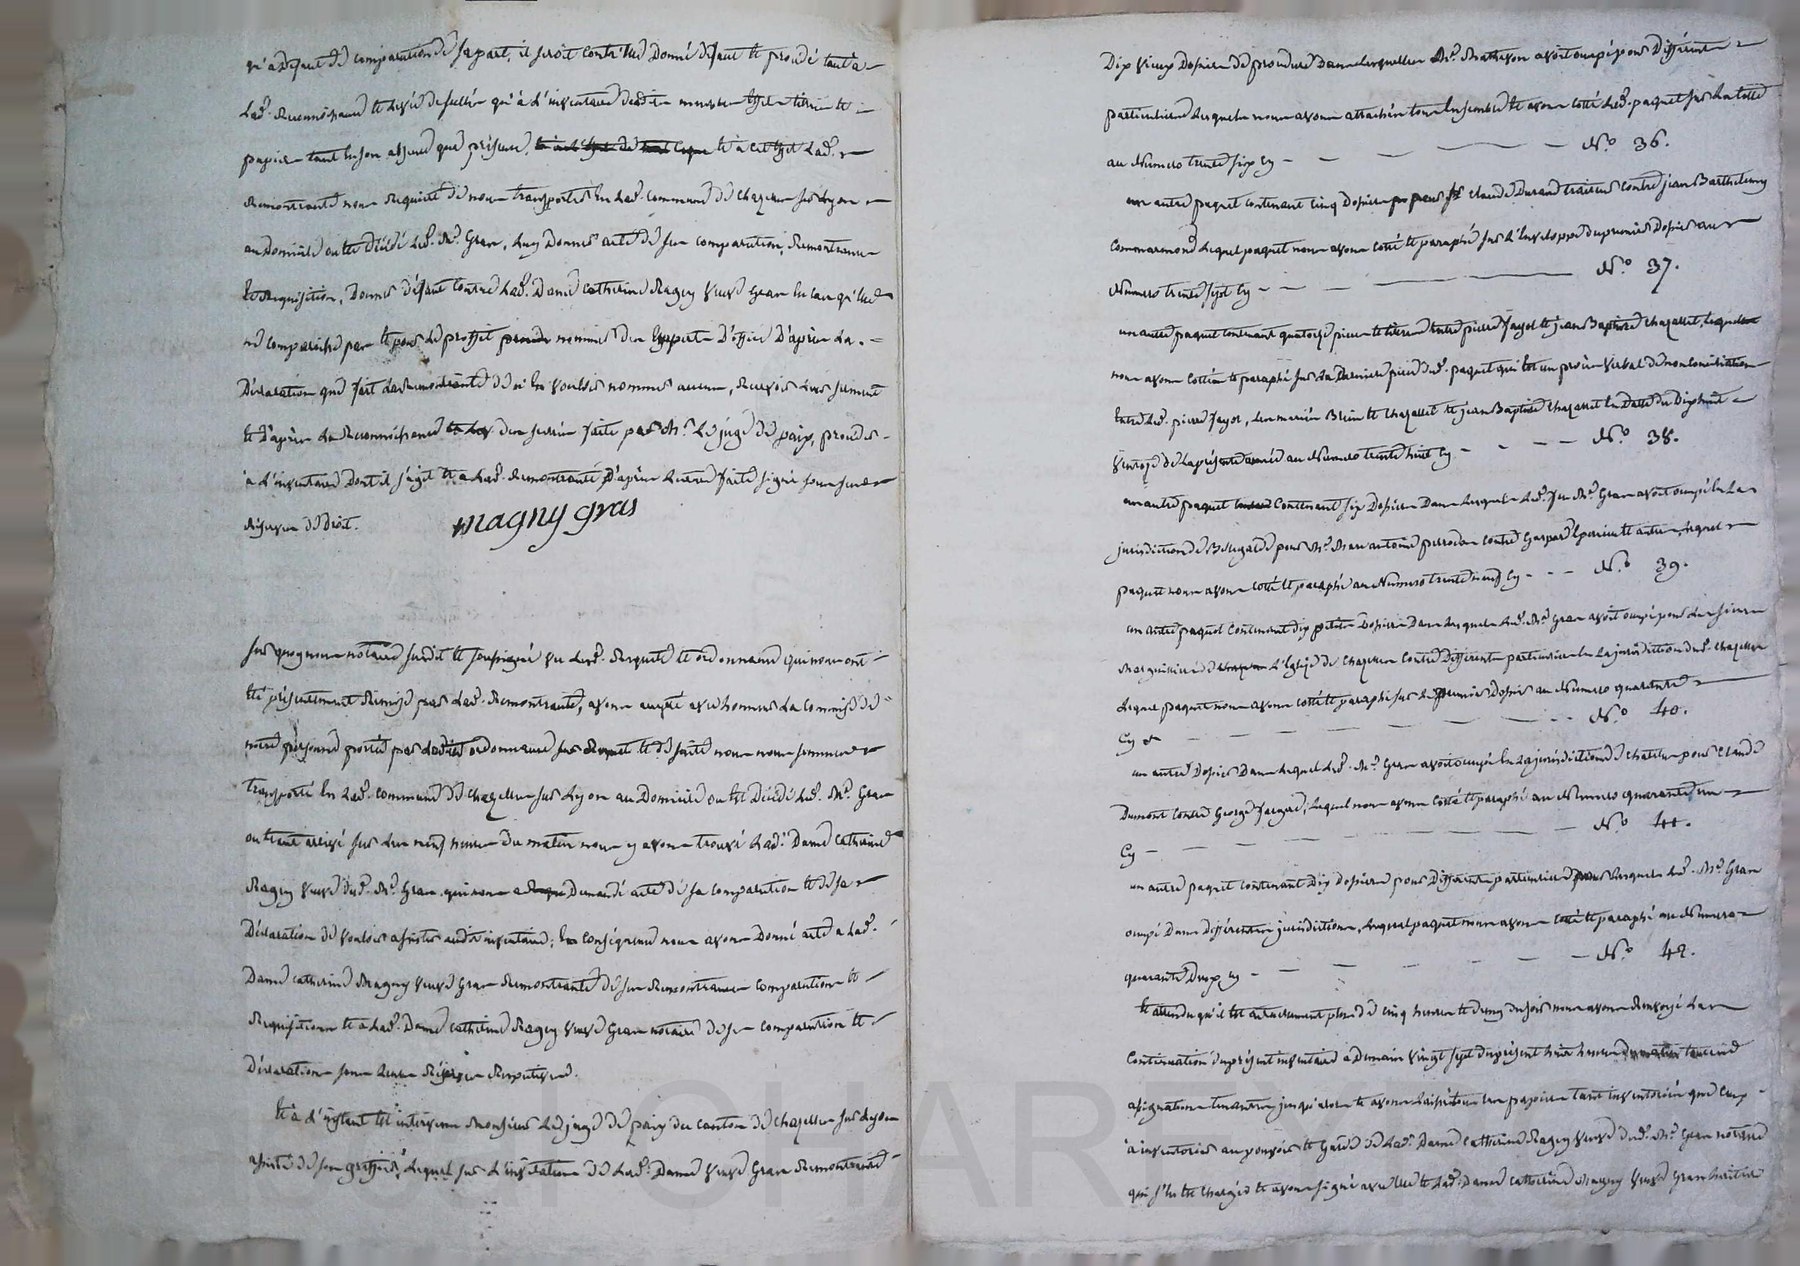 qu'a défaut de comparution de sa part, il seroit contr'elle donné défaut et procédé tant à
lad. reconnoissance et levée de scellés qu'à l'inventaire desdits meubles effets titres et
papiers tant en son absence que présence, et à cet effet lad.
remontrante nous requiert de nous transporter en lad. commune de Chazelles sur Lyon
au domicile où est décédé led. Me. Gras, luy donner acte de ses comparution, remontrances
et réquisition, donner défaut contre lad. dame Catherine Ragey veuve Gras en cas qu'elle
ne comparoisse pas et pour le proffit nommer des experts d'office d'après la
déclaration que fait la remontrante de n'en vouloir nommer aucun, recevoir leur serment
et d'après la reconnoissance des scellés faite par Mr. le juge de paix, procéder
à l'inventaire dont il s'agit et a lad. remontrante d'après lecture faite signé sous
réserves de droit. magny gras
sur quoy nous notaire susdit et soussigné vu lesd. requête et ordonnance qui nous ont
été présentement remises par lad. remontrante, avons accepté avec honneur la commise de
notre personne portée par ladite ordonnance sur requete et de suite nous nous sommes
transporté en lad. commune de Chazelles sur Lyon au domicile où est décédé led. Me. Gras
où étant arrivé sur les neuf heures du matin nous y avons trouvé lad. dame Catherine
Ragey veuve dud. Me. Gras qui nous a demandé acte de sa comparution et de sa
déclaration de vouloir assister audit inventaire; en conséquence nous avons donné acte a lad.
dame Catherine Magny veuve Gras remontrante de ses remontrances comparution et
requisitions et a lad. dame Catherine Ragey veuve Gras notaire de ses comparution et
déclaration sous leurs réserves respectives.
et à l'instant est intervenu Monsieur le juge de paix du canton de Chazelles sur Lyon
assisté de son greffier, lequel sur l'invitation de lad. dame veuve Gras remontrante
Dix vieux dossiers de procédure dans lesquelles Me. Mathevon avoit occupé pour différents
particuliers lesquels nous avons attachés tous ensemble et avons cotté led. paquet sur la
au numero trente six cy - - - - No. 36.
un autre paquet contenant cinq dossiers pour Claude Durand traiteur contre Jean Barthelemy
Commarmond lequel paquet nous avons cotté et paraphé sur l'enveloppe du premier dossier au
numero trente sept cy - - - - No. 37.
un autre paquet contenant quatorze pieces et titres entre pierre Jayol et jean Baptiste Chazallet, lequel
nous avons cotté et paraphé sur la derniere piece dud. paquet qui est un procès verbal de non conciliation
entre led. pierre Jayol, et Chazallet et jean Baptiste Chazallet en datte du dix huit
ventose de la présente année au numero trente huit cy - - - No. 38.
un autre paquet contenant six dossiers dans lesquels led. feu Me. Gras avoit occupé en la
jurisdiction de Bellegarde pour Me. Marc antoine perrodon contre Gaspard et autres, lequel
paquet nous avons cotté et paraphé au numero trente neuf cy - - - No. 39.
un autre paquet contenant dix petits dossiers dans lesquels led. Me. Gras avoit occupé pour les sieurs
marguilliers de l'église de Chazelles contre différents particuliers en la jurisdiction dud. Chazelles
lequel paquet nous avons cotté et paraphé sur le premier dossier au numero quarante
cy - - - - No. 40.
un autre dossier dans lequel led. Me. Gras avoit occupé en la jurisdiction de Chatelus pour Claude
Dumont contre George Jacquard, lequel nous avons cotté et paraphé au numero quarante un
cy - - - - No. 41.
un autre paquet contenant dix dossiers pour différents particuliers pour lesquels led. Me. Gras
occupé dans différentes jurisdictions, lequel paquet nous avons cotté et paraphé au numero
quarante deux cy - - - - No. 42.
et attendu qu'il est actuellement plus de cinq heures et demy du soir nous avons renvoyé la
continuation du présent inventaire a demain vingt sept du présent huit heures du matin
assignation tenante jusqu'alors et avons laissé tous les papiers tant inventoriés que ceux
à inventorier au pouvoir et garde de lad. dame Catherine Ragey veuve dud. Me. Gras notaire
qui s'en est chargée et avons signé avec elle et lad. dame Catherine Magny veuve Gras